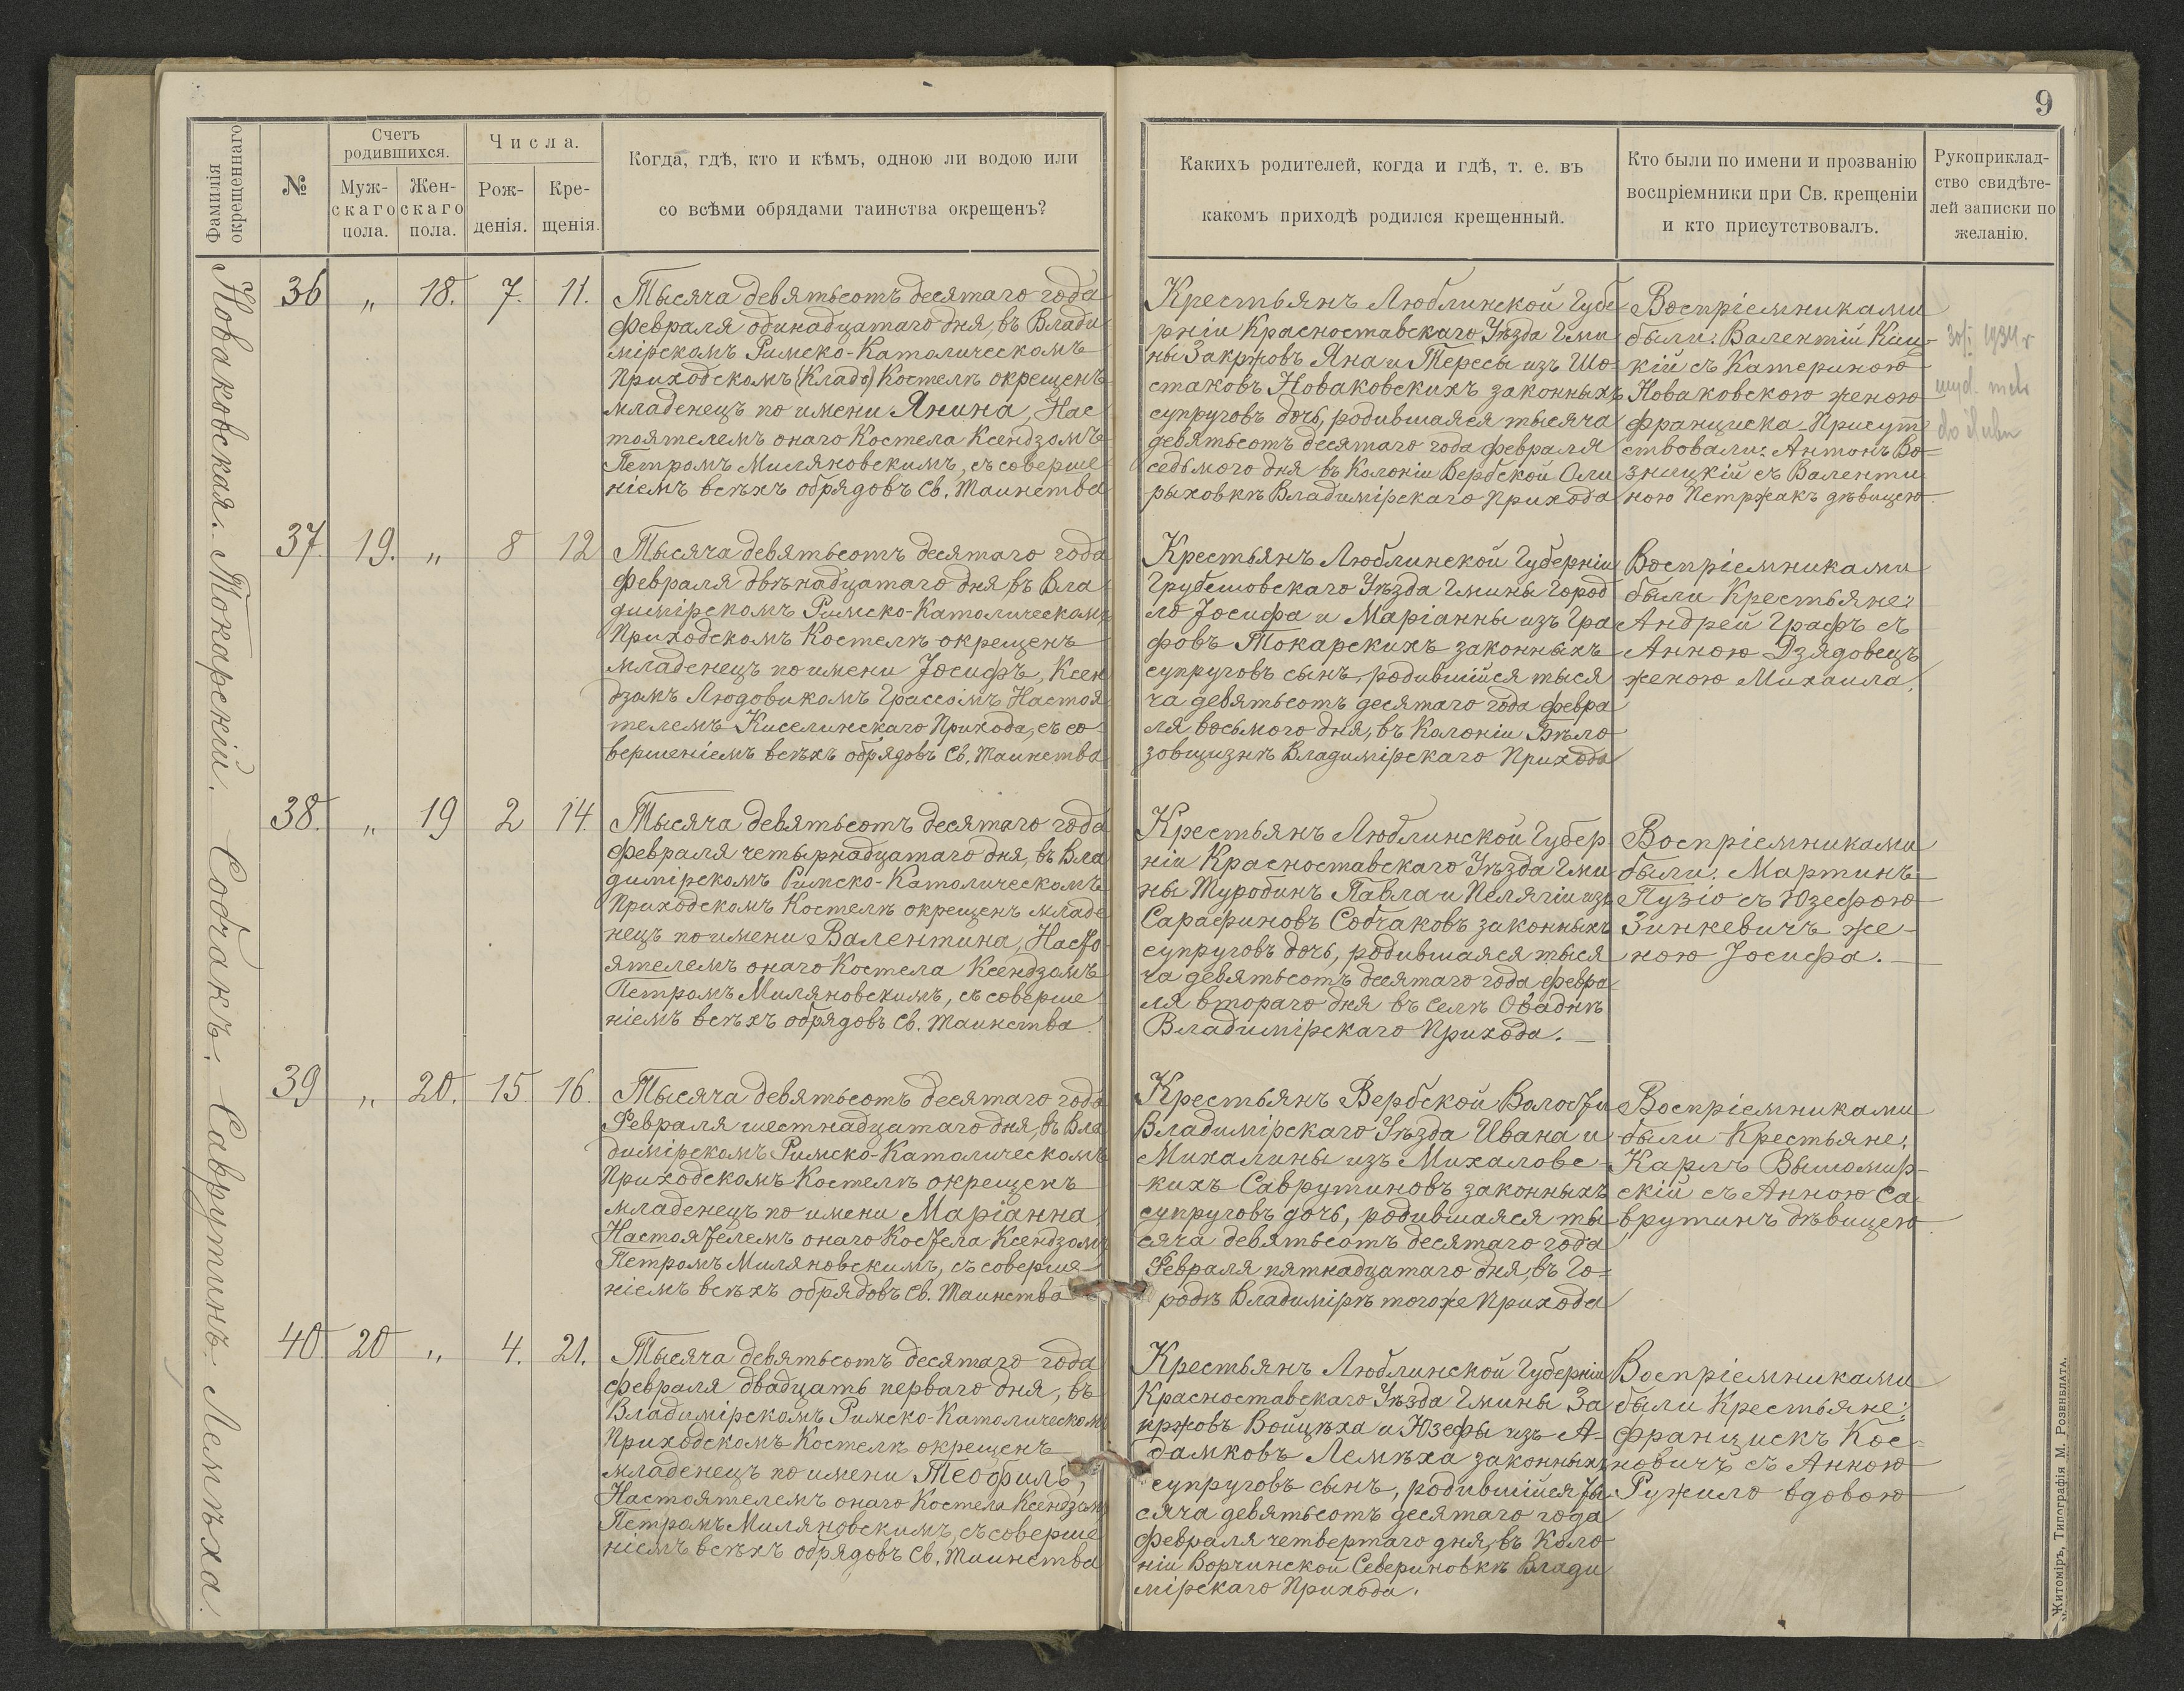 9
Фамилія
окрещеннаго
№
Счетъ
родившихся.
Муж-
скаго
пола.
Жен-
скаго
пола.
Числа.
Рож-
денія.
Кре-
щенія.
Когда, гдѣ, кто и кѣмъ, одною ли водою или
со всѣми обрядами таинства окрещенъ?
Какихъ родителей, когда и гдѣ, т. е. въ
какомъ приходѣ родился крещенный.
Кто были по имени и прозванію
воспріемники при Св. крещеніи
и кто присутствовалъ.
Рукоприклад-
ство свидѣте-
лей записки по
желанію.
Новаковская.
36 „ 18. 7. 11.
Тысяча девятьсотъ десятаго года
февраля одинадцатаго дня, въ Влади
мірскомъ Римско-Католическомъ
Приходскомъ (Кладб) Костелѣ окрещенъ
младенецъ по имени Янина, Нас
тоятелемъ онаго Костела Ксендзомъ
Петромъ Миляновскимъ, съ соверше
ніемъ всѣхъ обрядовъ Св. Таинства
Крестьянъ Люблинской Губе
рніи Красноставскаго Уѣзда Гми
ны Закржовъ Яна и Тересы изъ Шо
стаковъ Новаковскихъ законныхъ
супруговъ дочь, родившаяся тысяча
девятьсотъ десятаго года февраля
седьмого дня въ Колоніи Вербской Оли
рыховкѣ Владимірскаго Прихода
Воспріемниками
были: Валентій
кій съ Катериною
Новаковскою женою
Франциска. Присут
ствовали: Антонъ Во
зницкій съ Валенти
ною Петржакъ дѣвицею
Токарскій.
37. 19. „ 8 12
Тысяча девятьсотъ десятаго года
февраля двѣнадцатаго дня въ Вла
димірскомъ Римско-Католическомъ
Приходскомъ Костелѣ окрещенъ
младенецъ по имени Іосифъ, Ксен
дзомъ Людовикомъ Грассомъ Настоя
телемъ Киселинскаго Прихода, съ со
вершеніемъ всѣхъ обрядовъ Св. Таинства
Крестьянъ Люблинской Губерніи
Грубешовскаго Уѣзда Гмины Город
ло Іосифа и Маріанны изъ Гра
фовъ Токарскихъ законныхъ
супруговъ сынъ, родившійся тыся
ча девятьсотъ десятаго года февра
ля восьмого дня, въ Колоніи Бѣло
зовщизнѣ Владимірскаго Прихода
Воспріемниками
были Крестьяне:
Андрей Графъ съ
Анною Дзядовецъ
женою Михаила.
Собчакъ.
38. „ 19 2 14.
Тысяча девятьсотъ десятаго года
февраля четырнадцатаго дня, въ Вла
димірскомъ Римско-Католическомъ
Приходскомъ Костелѣ окрещенъ младе
нецъ по имени Валентина, Насто
ятелемъ онаго Костела Ксендзомъ
Петромъ Миляновскимъ, съ соверше
ніемъ всѣхъ обрядовъ Св. Таинства.
Крестьянъ Люблинской Губер
ніи Красноставскаго Уѣзда Гми
ны Туробинъ Павла и Пелягіи изъ
Сарафиновъ Собчаковъ законныхъ
супруговъ дочь, родившаяся тыся
ча девятьсотъ десятаго года февра
ля второго дня въ селѣ Оваднѣ
Владимірскаго Прихода.
Воспріемниками
были: Мартинъ
Пузіо съ Юзефою
Зинкевичъ же-
ною Іосифа.
Саврутинъ.
39 „ 20. 15. 16.
Тысяча девятьсотъ десятаго года
Февраля шестнадцатаго дня, въ Вла
димірскомъ Римско-Католическомъ
Приходскомъ Костелѣ окрещенъ
младенецъ по имени Маріанна,
Настоятелемъ онаго Костела Ксендзомъ
Петромъ Миляновскимъ, съ соверше
ніемъ всѣхъ обрядовъ Св. Таинства
Крестьянъ Вербской Волости
Владимірскаго Уѣзда Ивана и
Михалины изъ Михаловс-
кихъ Саврутиновъ законныхъ
супруговъ дочь, родившаяся ты
сяча девятьсотъ десятаго года
Февраля пятнадцатаго дня, въ Го-
родѣ Владимірѣ тогоже Прихода
Воспріемниками
были Крестьяне:
Карлъ Вышомир-
скій съ Анною Са
врутинъ дѣвицею
Лемѣха.
40. 20 „ 4. 21.
Тысяча девятьсотъ десятаго года
февраля двадцать перваго дня, въ
Владимірскомъ Римско-Католическомъ
Приходскомъ Костелѣ окрещенъ
младенецъ по имени Теофилъ,
Настоятелемъ онаго Костела Ксендзомъ
Петромъ Миляновскимъ, съ соверше
ніемъ всѣхъ обрядовъ Св. Таинства
Крестьянъ Люблинской Губерніи
Красноставскаго Уѣзда Гмины За
кржовъ Войцѣха и Юзефы изъ А-
дамковъ Лемѣха законныхъ
супруговъ сынъ, родившійся ты
сяча девятьсотъ десятаго года
февраля четвертаго дня, въ Коло
ніи Ворчинской Севериновкѣ Влади
мірскаго Прихода.
Воспріемниками
были Крестьяне:
Францискъ Кос-
новичъ съ Анною
Ружило вдовою
1934 r
wyd. metr.
do ślubu
Житоміръ, Типографія М. Розенблата.